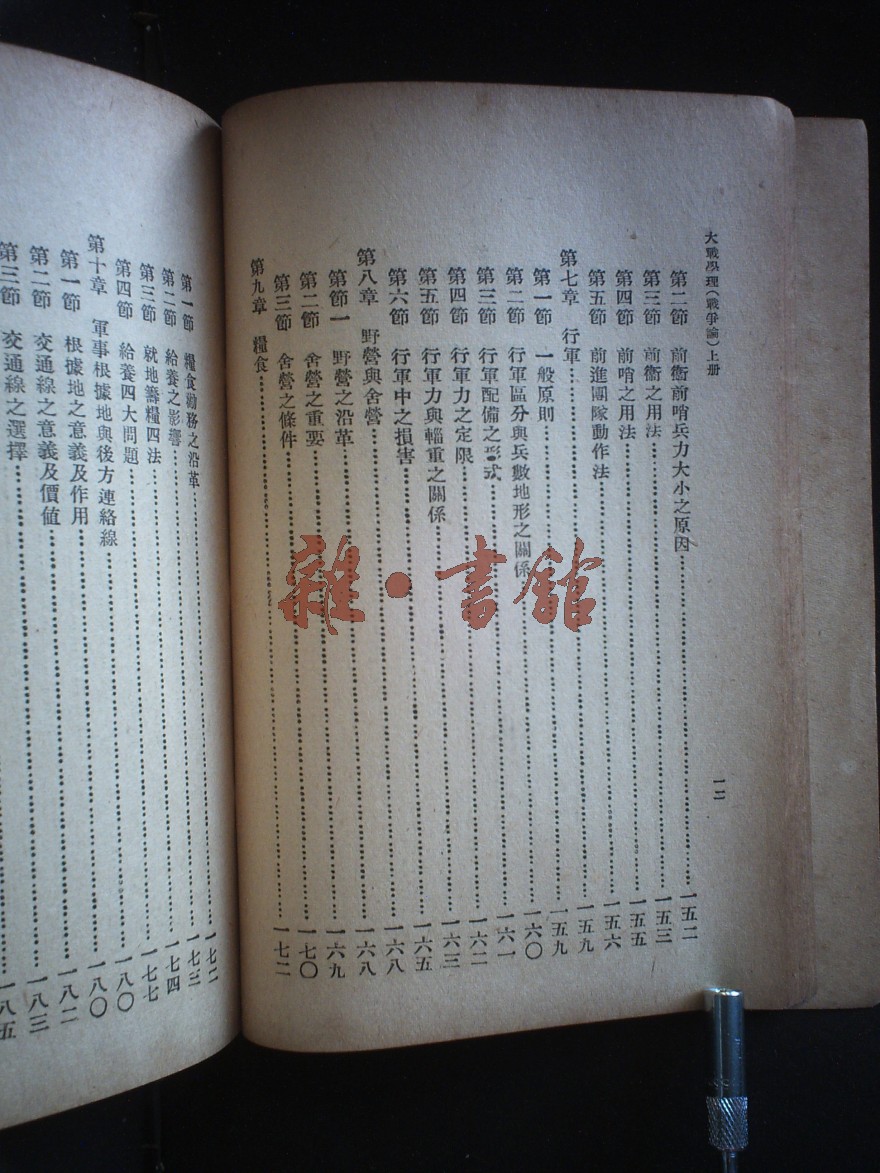 大戰學理(戰爭論)上册
一二
第二節 前衞前哨兵力大小之原因 一五二
第三節 前衞之用法 一五三
第四節 前哨之用法 一五五
第五節 前進團隊動作法 一五六
第七章 行軍 一五九
第一節 一般原則 一五九
第二節 行軍區分與兵數地形之關係 一六〇
第三節 行軍配備之形式 一六一
第四節 行軍力之定限 一六二
第五節 行軍力與輜重之關係 一六三
第六節 行軍中之損害 一六五
第八章 野營與舍營 一六八
第節一 野營之沿革 一六八
第二節 舍營之重要 一六九
第三節 舍營之條件 一七〇
第九章 糧食 一七二
第一節 糧食勤務之沿革 一七二
第二節 給養之影響 一七三
第三節 就地籌糧四法 一七四
第四節 給養四大問題 一七七
第十章 軍事根據地與後方連絡線 一八〇
第一節 根據地之意義及作用 一八〇
第二節 交通線之意義及價値 一八二
第三節 交通線之選擇 一八三
一八五
雜·書館